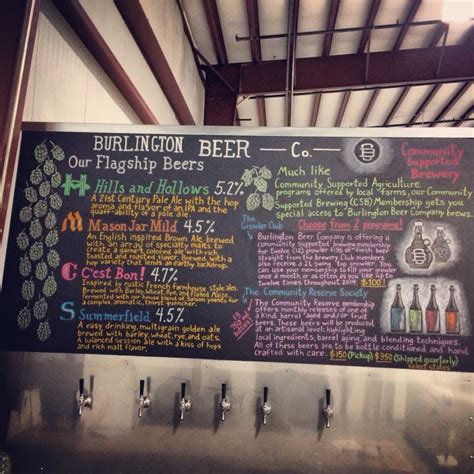 BURLINGTON BEER — Co. —
Our Flagship Beers
Hills and Hollows 5.2%
A 21st Century Pale Ale with the hop
aroma and flavor of an IPA and the
quaff-ability of a pale ale
Mason Jar Mild 4.5%
An English inspired Brown Ale brewed
with an array of specialty malts to
create a garnet colored ale with soft,
toasted and roasted flavor. Brewed with a
hop variety that lends an earthy backdrop.
C'est Bon! 4.7%
Inspired by rustic French farmhouse style ales.
Brewed with Barley, Wheat, Rye and Flaked Maize,
fermented with our house blend of Saison yeasts for a
complex, aromatic, thirst quencher
Summerfield 4.5%
A easy drinking, multigrain golden ale
brewed with barley, wheat, rye, and oats.
A balanced session ale with a kiss of hops
and rich malt flavor.
B
Community
Supported
Brewery
Much like
Community Supported Agriculture
programs offered by local farms, our Community
Supported Brewing (CSB) Membership gets you
special access to Burlington Beer Company brews.
Choose from 2 programs!
The
Growler Club
Burlington Beer Company is offering a
community supported brewing membership
for twelve (12) refills of our beers
straight from the brewery. Club members
also receive a growler. You can
use your membership to fill your growler
once a month or as often as you like up to
twelve times throughout 2014 $100!
The Community Reserve Society
13
750 ml
The Community Reserve Society
offers monthly releases of one of
a kind, barrel aged and/or fruit
beers. These beers will be produced
at an artisanal level; highlighting
local ingredients, barrel aging, and blending techniques.
All of these beers are to be bottle conditioned and hand
crafted with care. $150 (Pickup) $350 (Shipped quarterly)
select states